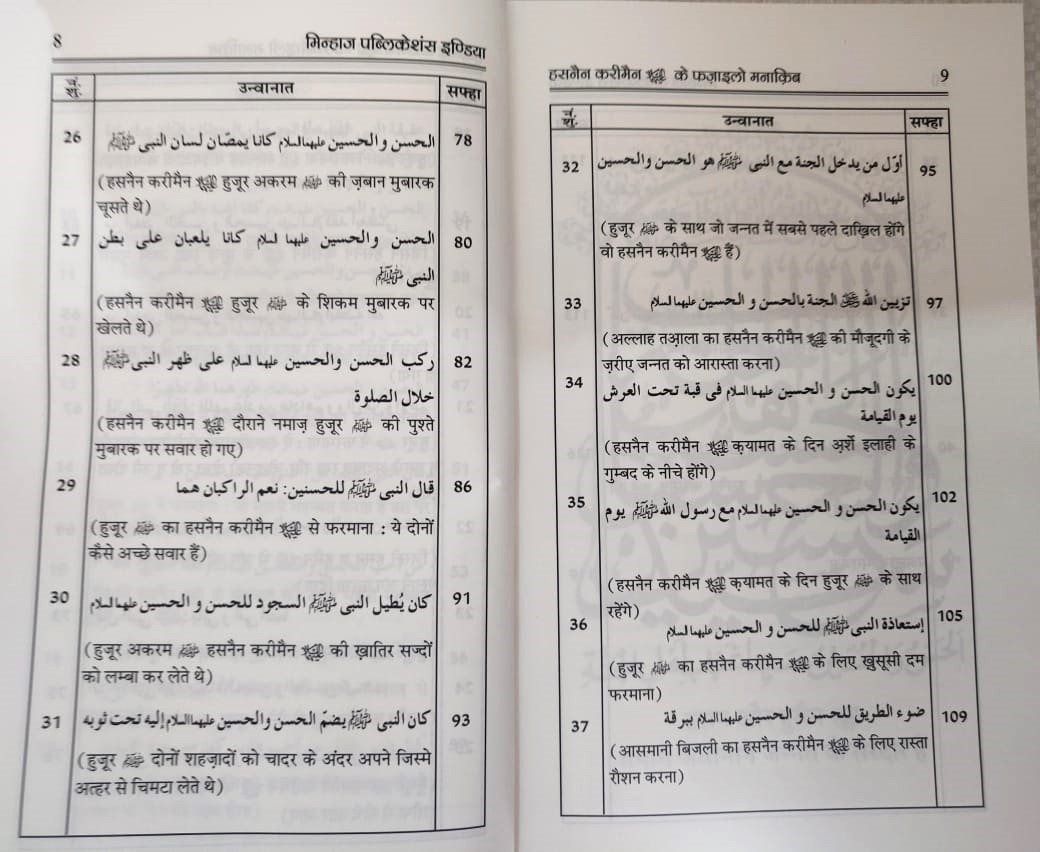 8
मिन्हाज पब्लिकेशंस इण्डिया
नं. शु. उन्वानात सफ्हा
26 الحسن و الحسين عليهما السلام كانا يمصّان لسان النبي ﷺ 78
(हसनैन करीमैन हुजूर अकरम ﷺ की ज़बान मुबारक
चूसते थे)
27 الحسن والحسين عليهما السلام كانا يلعبان على بطن 80
النبي ﷺ
(हसनैन करीमैन हुजूर ﷺ के शिकम मुबारक पर
खेलते थे)
28 ركب الحسن والحسين عليهما السلام على ظهر النبي ﷺ 82
خلال الصلوة
(हसनैन करीमैन दौराने नमाज़ हुजूर ﷺ की पुश्ते
मुबारक पर सवार हो गए)
29 قال النبي ﷺ للحسنين: نعم الراكبان هما 86
(हुजूर ﷺ का हसनैन करीमैन से फरमाना : ये दोनों
कैसे अच्छे सवार हैं)
30 كان يُطيل النبي ﷺ السجود للحسن و الحسين عليهما السلام 91
(हुजूर अकरम ﷺ हसनैन करीमैन की ख़ातिर सज्दों
को लम्बा कर लेते थे)
31 كان النبي ﷺ يضمّ الحسن والحسين عليهما السلام إليه تحت ثوبه 93
(हुजूर ﷺ दोनों शहज़ादों को चादर के अंदर अपने जिस्मे
अत्हर से चिमटा लेते थे)
हसनैन करीमैन के फज़ाइलो मनाक़िब 9
नं. शु. उन्वानात सफ्हा
32 أوّل من يدخل الجنة مع النبي ﷺ هو الحسن والحسين 95
عليهما السلام
(हुजूर ﷺ के साथ जो जन्नत में सबसे पहले दाख़िल होंगे
वो हसनैन करीमैन हैं)
33 تزيين الله ﷻ الجنة بالحسن و الحسين عليهما السلام 97
(अल्लाह तआ़ला का हसनैन करीमैन की मौजूदगी के
ज़रीए जन्नत को आरास्ता करना)
34 يكون الحسن و الحسين عليهما السلام فى قبة تحت العرش 100
يوم القيامة
(हसनैन करीमैन क़यामत के दिन अ़र्शे इलाही के
गुम्बद के नीचे होंगे)
35 يكون الحسن و الحسين عليهما السلام مع رسول الله ﷺ يوم 102
القيامة
(हसनैन करीमैन क़यामत के दिन हुजूर ﷺ के साथ
रहेंगे)
36 إستعاذة النبي ﷺ للحسن و الحسين عليهما السلام 105
(हुजूर ﷺ का हसनैन करीमैन के लिए ख़ुसूसी दम
फरमाना)
37 ضوء الطريق للحسن و الحسين عليهما السلام ببرقة 109
(आसमानी बिजली का हसनैन करीमैन के लिए रास्ता
रौशन करना)